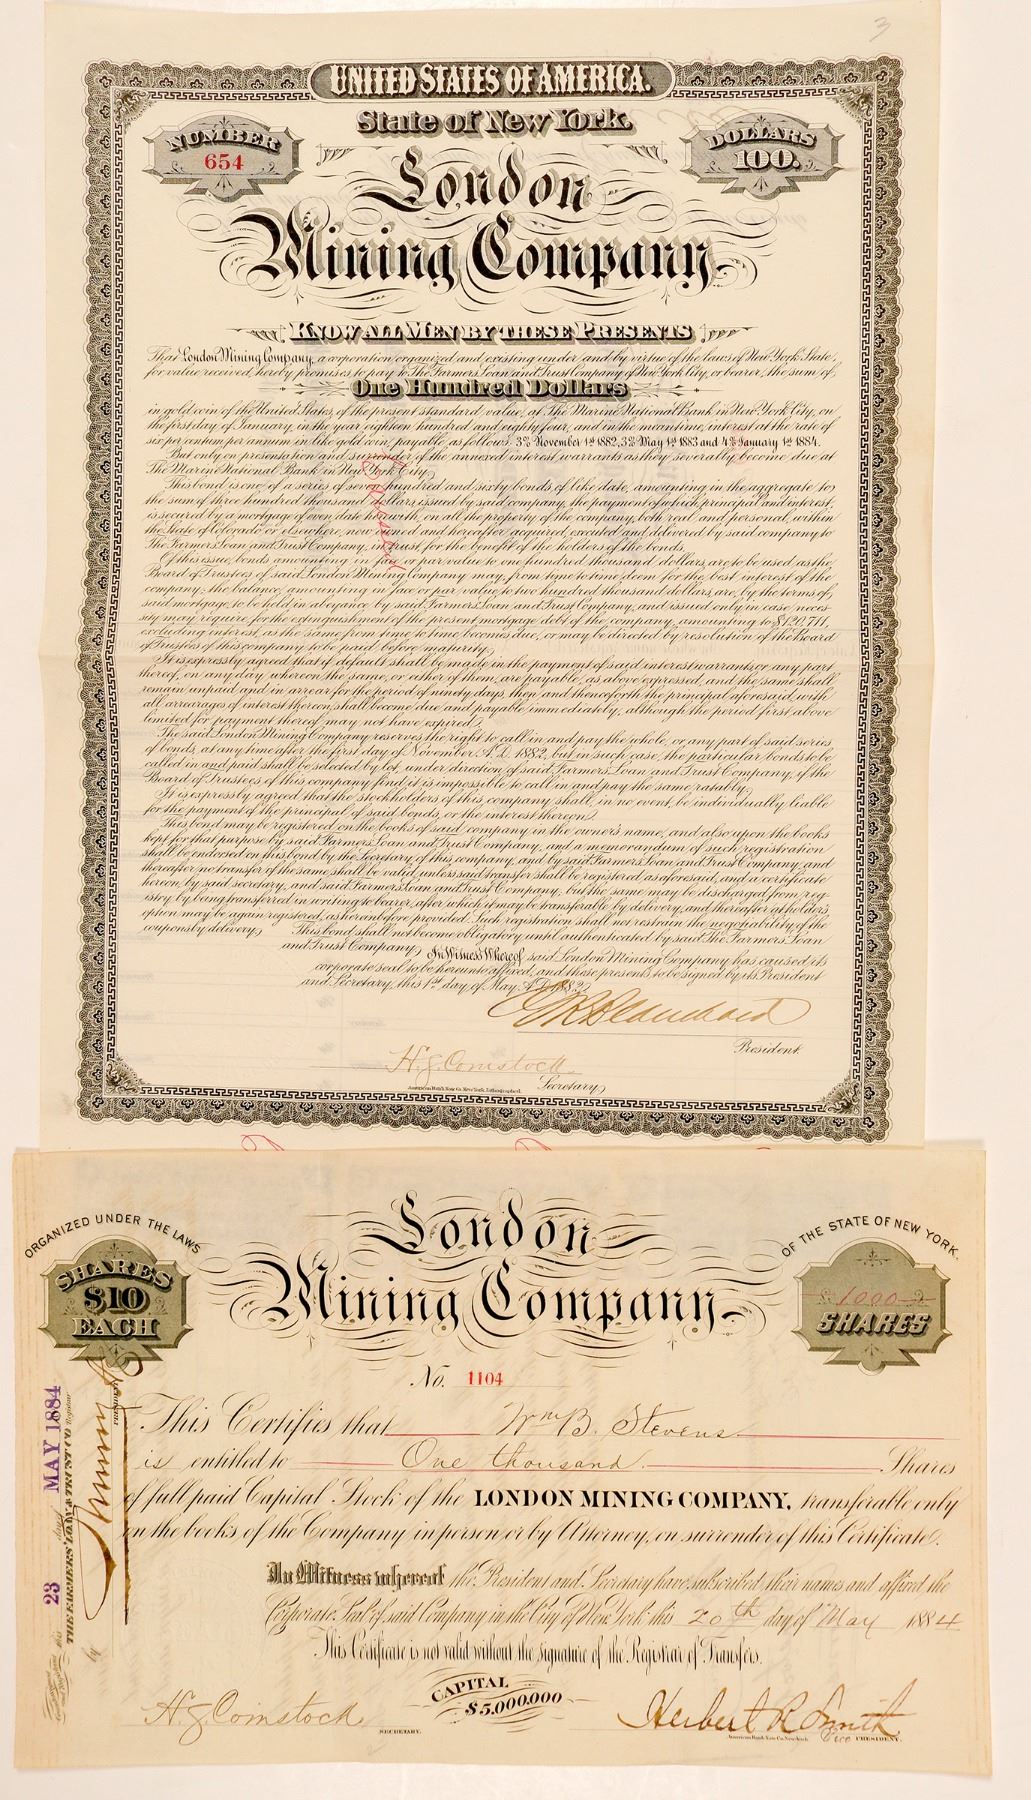 3
UNITED STATES OF AMERICA.
State of New York.
NUMBER
654
DOLLARS
100.
London
Mining Company.
KNOW ALL MEN BY THESE PRESENTS
That London Mining Company, a corporation organized and existing under and by virtue of the laws of New York State,
for value received, hereby promises to pay to The Farmers Loan and Trust Company of New York City, or bearer, the sum of,
One Hundred Dollars
in gold coin of the United States, of the present standard value, at The Marine National Bank in New York City, on
the first day of January, in the year eighteen hundred and eighty four, and in the meantime, interest at the rate of
six per centum per annum in like gold coin, payable, as follows: 3% November 1st 1882, 3% May 1st 1883 and 4% January 1st 1884.
But only on presentation and surrender of the annexed interest warrants as they severally become due at
The Marine National Bank in New York City.
This bond is one of a series of seven hundred and sixty bonds of like date, amounting in the aggregate to
the sum of three hundred thousand dollars, issued by said company, the payment of which, principal and interest,
is secured by a mortgage of even date herewith, on all the property of the company, both real and personal, within
the State of Colorado or elsewhere, now owned and hereafter acquired, executed and delivered by said company to
The Farmers Loan and Trust Company, in trust, for the benefit of the holders of the bonds.
Of this issue, bonds amounting in face or par value to one hundred thousand dollars are to be used as the
Board of Trustees of said London Mining Company may, from time to time deem for the best interest of the
company; the balance, amounting in face or par value to two hundred thousand dollars, are, by the terms of
said mortgage, to be held in abeyance by said Farmers Loan and Trust Company, and issued only in case neces-
sity may require, for the extinguishment of the present mortgage debt of the company, amounting to $120,711,
excluding interest, as the same from time to time becomes due, or may be directed by resolution of the Board
of Trustees of this company to be paid before maturity.
It is expressly agreed that if default shall be made in the payment of said interest warrants or any part
thereof, on any day whereon the same, or either of them, are payable, as above expressed, and the same shall
remain unpaid and in arrear for the period of ninety days, then and thenceforth the principal aforesaid, with
all arrearages of interest thereon, shall become due and payable immediately, although the period first above
limited for payment thereof may not have expired.
The said London Mining Company reserves the right to call in and pay the whole, or any part of said series
of bonds, at any time after the first day of November A.D. 1882, but in such case, the particular bonds to be
called in and paid shall be selected by lot, under direction of said Farmers Loan and Trust Company, if the
Board of Trustees of this company find it is impossible to call in and pay the same ratably.
It is expressly agreed that the stockholders of this company shall, in no event, be individually liable
for the payment of the principal of said bonds, or the interest thereon.
This bond may be registered on the books of said company in the owners name, and also upon the books
kept for that purpose by said Farmers Loan and Trust Company, and a memorandum of such registration
shall be endorsed on this bond by the Secretary of this company, and by said Farmers Loan and Trust Company, and
thereafter no transfer of the same shall be valid unless said transfer shall be registered as aforesaid, and a certificate
hereon, by said secretary, and said Farmers Loan and Trust Company, but the same may be discharged from reg-
istry by being transferred in writing to bearer, after which it may be transferable by delivery, and thereafter at holder's
option may be again registered, as hereinbefore provided. Such registration shall not restrain the negotiability of the
coupons by delivery. This bond shall not become obligatory until authenticated by said The Farmers Loan
and Trust Company. In Witness Whereof said London Mining Company has caused its
corporate seal to be hereunto affixed, and these presents to be signed by its President
and Secretary, this 1st day of May A.D. 1882.
E R Blanchard
President.
H. J. Comstock.
American Bank Note Co. New York, Lithographed.
Secretary
ORGANIZED UNDER THE LAWS
OF THE STATE OF NEW YORK.
London
Mining Company.
SHARES
$10
EACH
1000
SHARES
No. 1104
This Certifies that Wm B. Stevens
is entitled to One thousand Shares
of full paid Capital Stock of the LONDON MINING COMPANY, transferable only
on the books of the Company in person or by Attorney, on surrender of this Certificate.
In Witness whereof the President and Secretary have subscribed their names and affixed the
Corporate Seal of said Company in the City of New York this 20th day of May 1884
This Certificate is not valid without the signature of the Registrar of Transfers.
CAPITAL
$5,000,000
H. J. Comstock
SECRETARY.
Herbert R Smith
American Bank Note Co. New York.
Vice PRESIDENT.
this 23 day of MAY 1884
THE FARMERS' LOAN & TRUST CO. Registrar
by